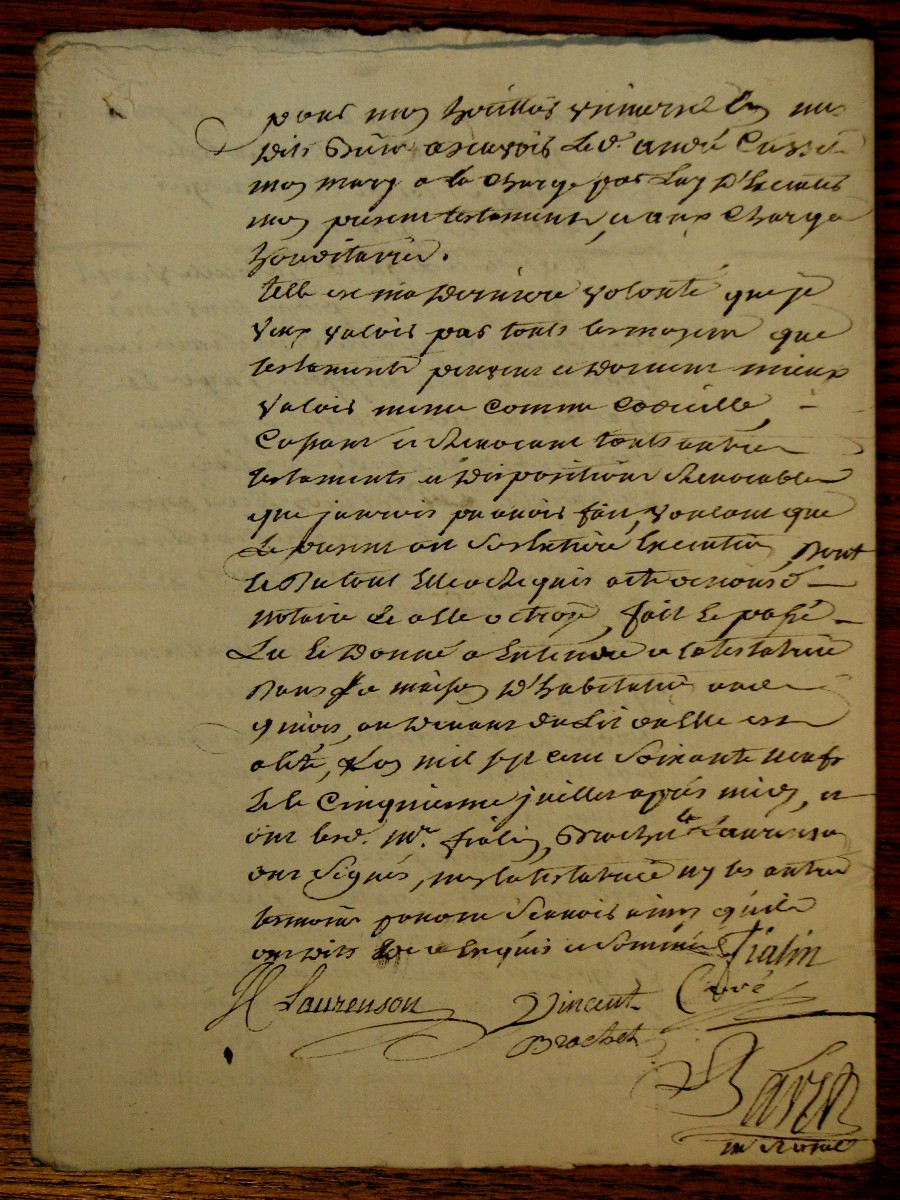 pour mon heritier universel en mes
dits biens a sçavoir le Sr. andré Cussé
mon mary a la charge par luy d'Executer
mon present testament, et aux charges
hereditaires.
telle est ma derniere volonté que je
veux valoir par touts les moyens que
testaments peuvent et doivent mieux
valoir meme comme codicille,
Cassant et Revocant touts autres
testaments et dispositions Revocables
que jaurois pu avoir fait, voulant que
le present ait son entiere Execution, Dont
le du tout Elle a Requis acte a nous d.
notaire Le a elle octroyé, fait Le passé
Lu Le Donné a Entendre a la testatrice
Dans sa maison D'habitation
au devant du Lit ou Elle est
alité, L'an mil sept cent soixante neuf
Et le Cinquieme juillet après midy, et
ont lesd. mr. fialin, Brochet et Laurenson
ont signés, non la testatrice ny les autres
temoins pour ne sçavoir ainsi qu'ils
ont dits de ce Enquis et sommés Fialin
H Laurenson Vincent Curé
Brochet